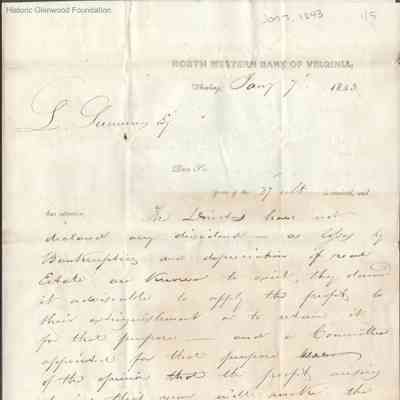 Historic Glenwood Foundation
Jan 7, 1843
1/5
NORTH WESTERN BANK OF VIRGINIA,
Wheeling, Jany 7th 1843
L. Summers Esq
Dear Sir
Yours of the 27 ult is received, and
The Directors have not
declared any dividend — as losses by
Bankruptcies and depreciation of real
Estate are known to exist, they deem
it adviseable to apply the profits to
their extinguishment or to retain it
for that purpose — and a Committee
appointed for that purpose
of the opinion that the profits arising
that year will
the